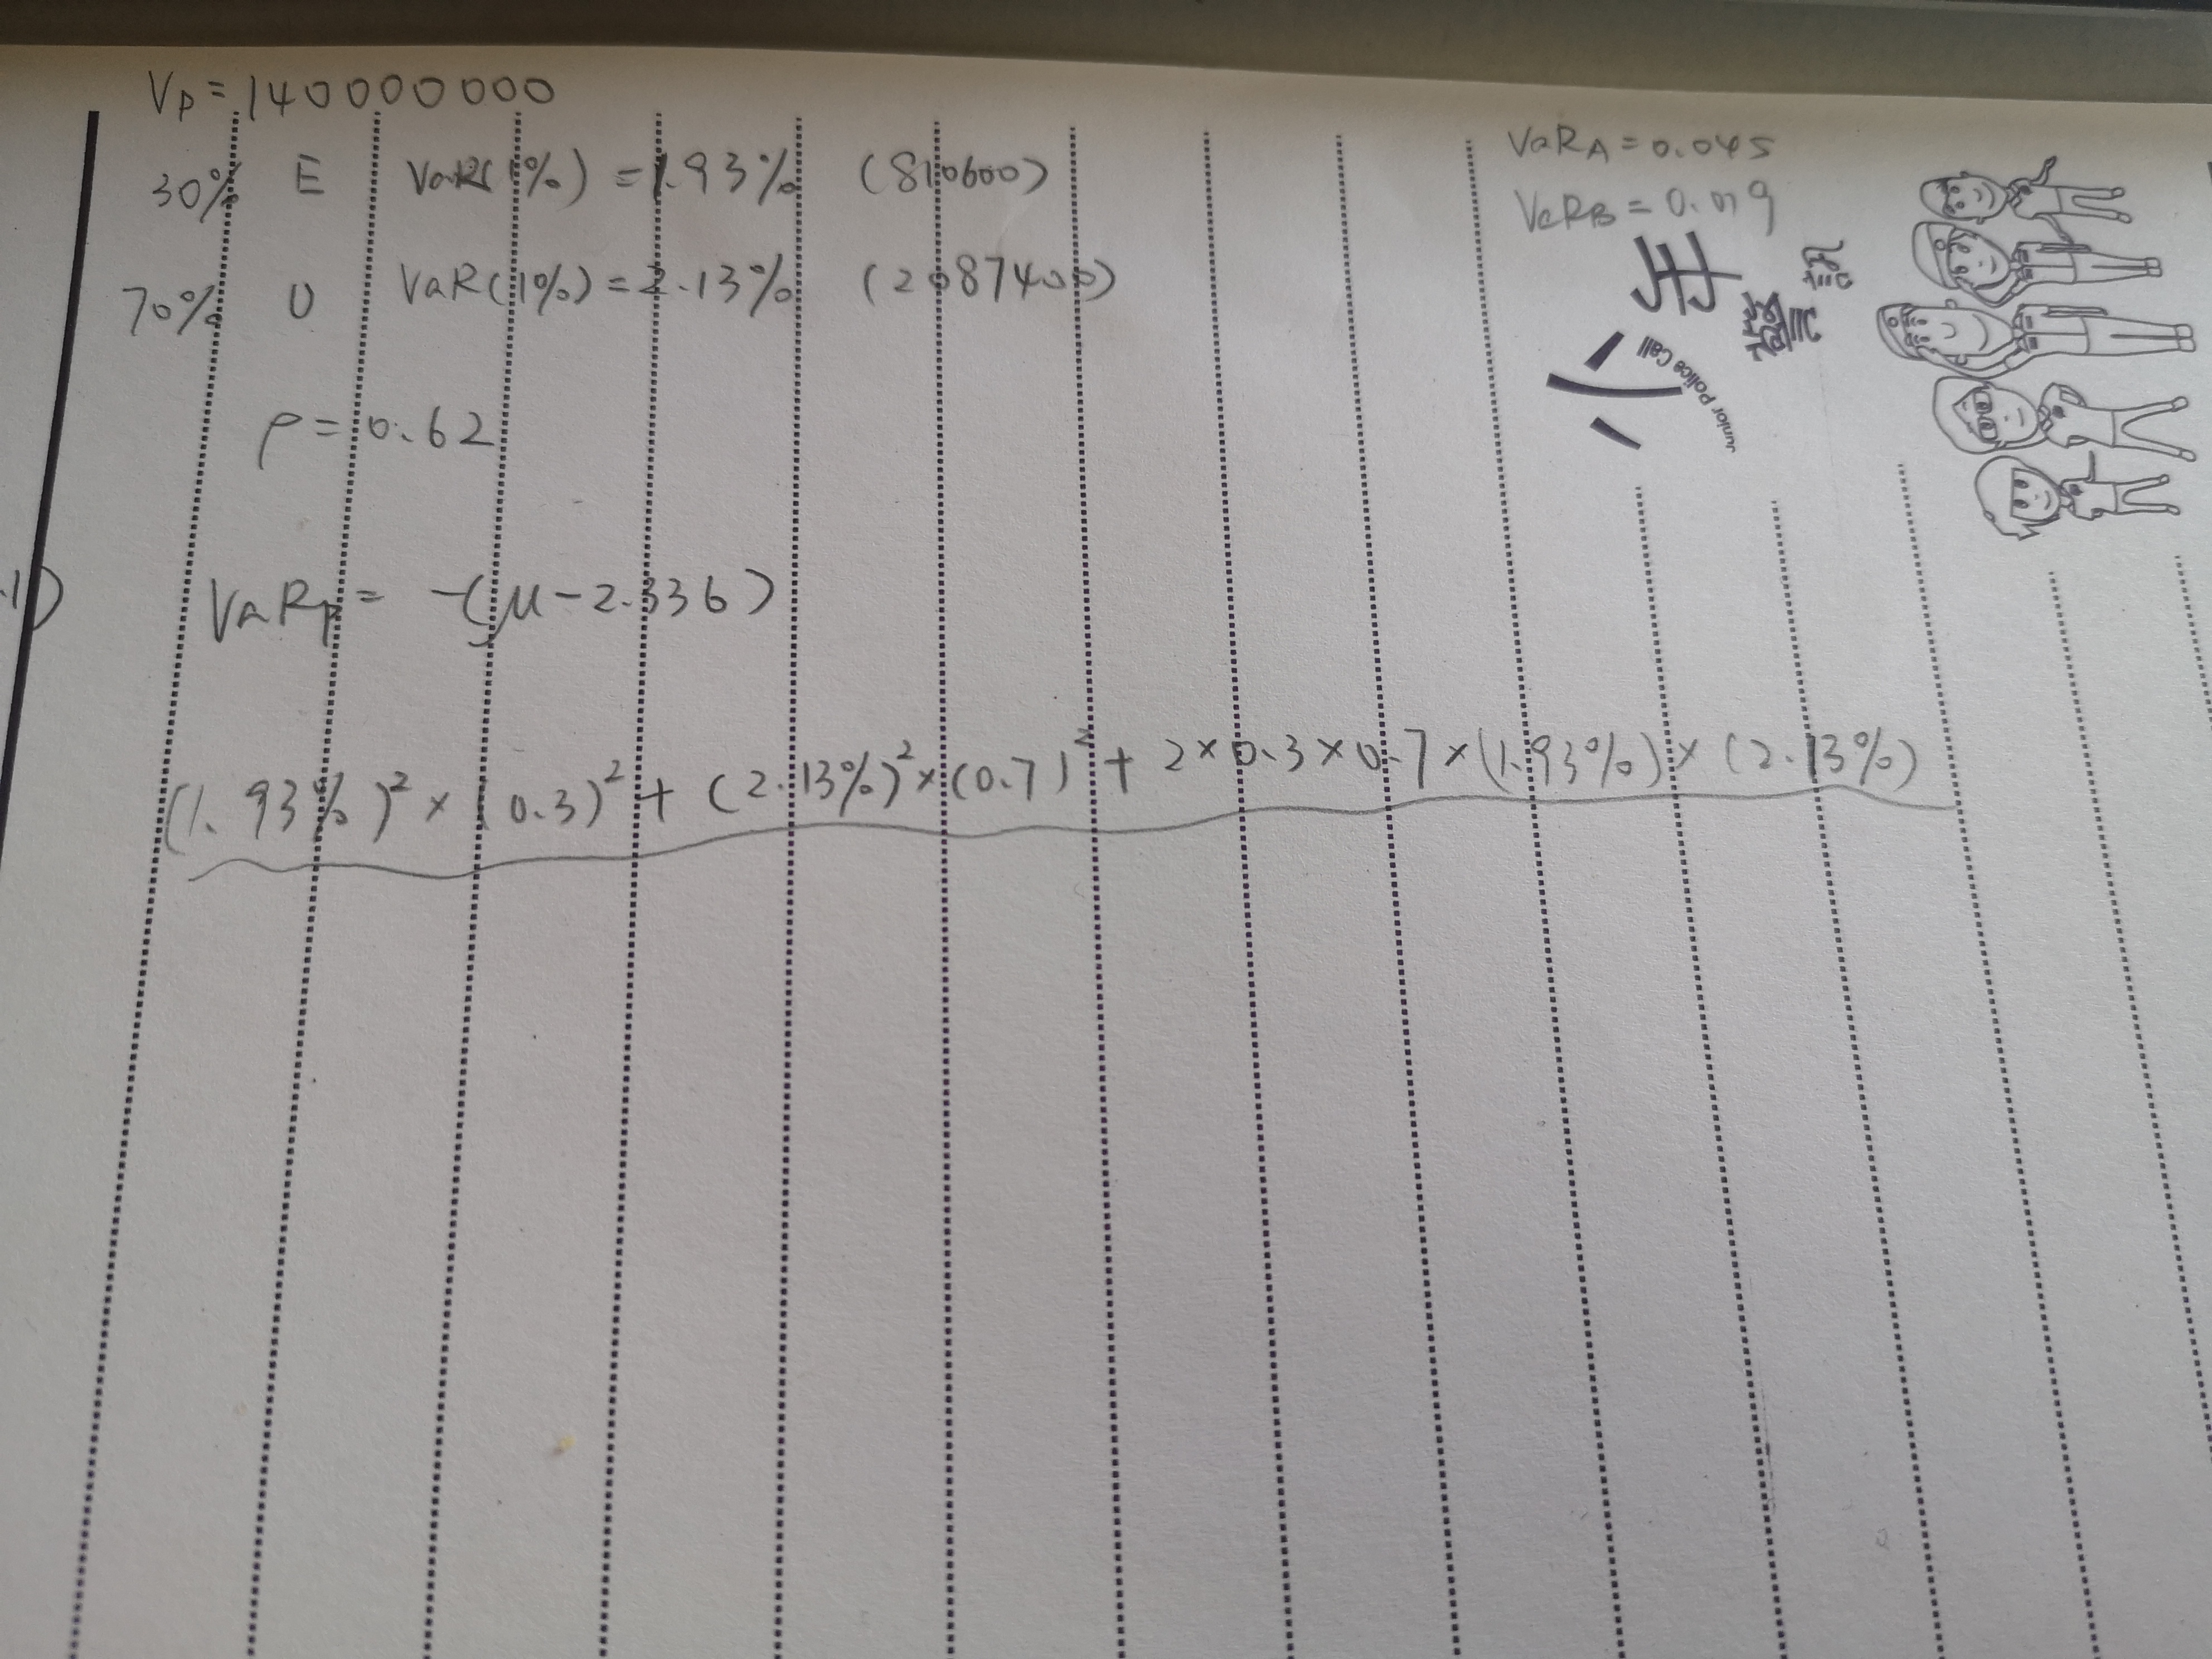 Vp = 140000000
30% E VaR(1%) = 1.93% (810600)
70% U VaR(1%) = 2.13% (2087400)
ρ = 0.62
VaRA = 0.045
VaRB = 0.019
Junior Police Call
1)
VaRp = -(μ-2.336)
(1.93%)² × (0.3)² + (2.13%)² × (0.7)² + 2×0.3×0.7×(1.93%)×(2.13%)